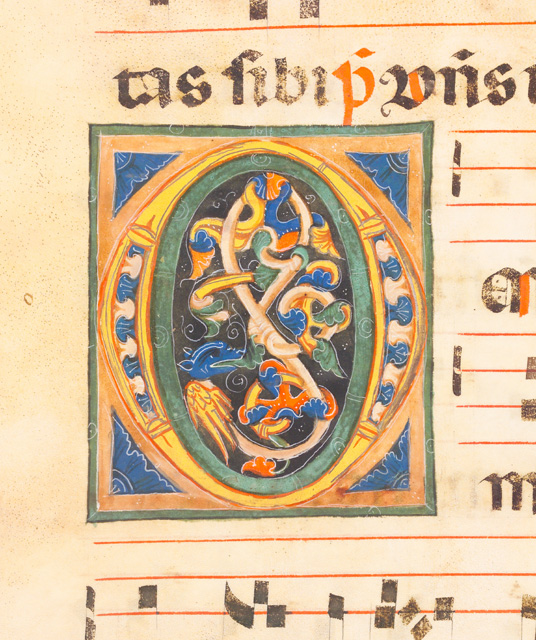 tas sibi p̄ Vn̄s
O
m